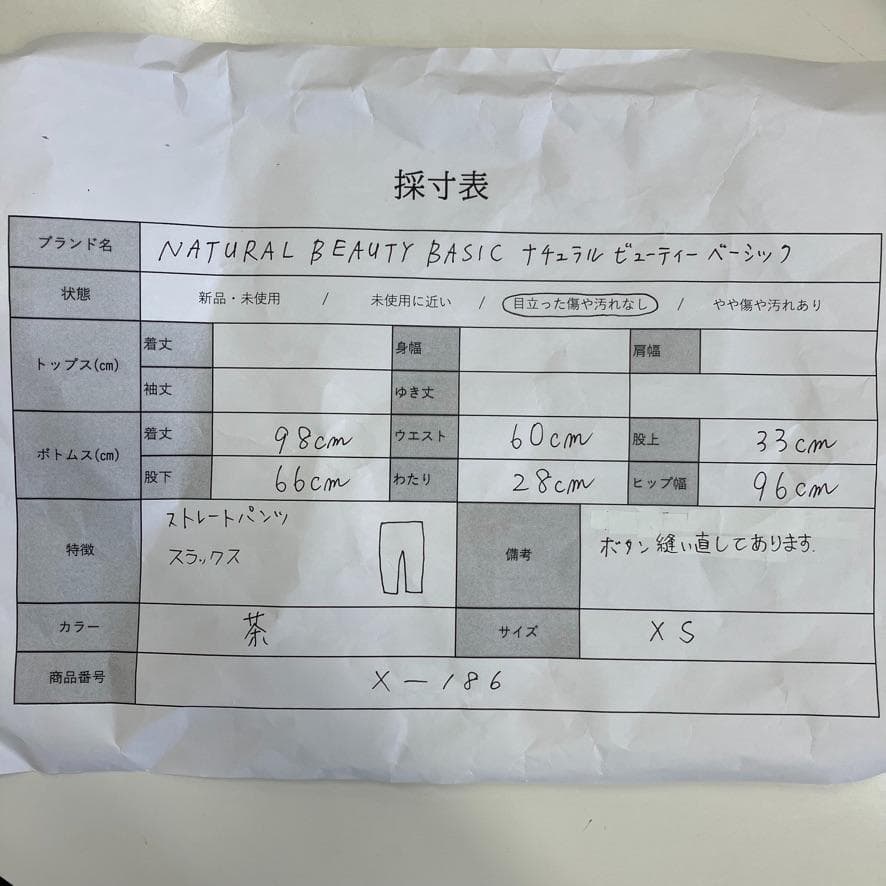 採寸表
ブランド名 NATURAL BEAUTY BASIC ナチュラル ビューティー ベーシック
状態 新品・未使用 / 未使用に近い / 目立った傷や汚れなし / やや傷や汚れあり
トップス(cm) 着丈 身幅 肩幅
袖丈 ゆき丈
ボトムス(cm) 着丈 98cm ウエスト 60cm 股上 33cm
股下 66cm わたり 28cm ヒップ幅 96cm
特徴 ストレートパンツ
スラックス
備考 ボタン縫い直してあります.
カラー 茶 サイズ XS
商品番号 X-186